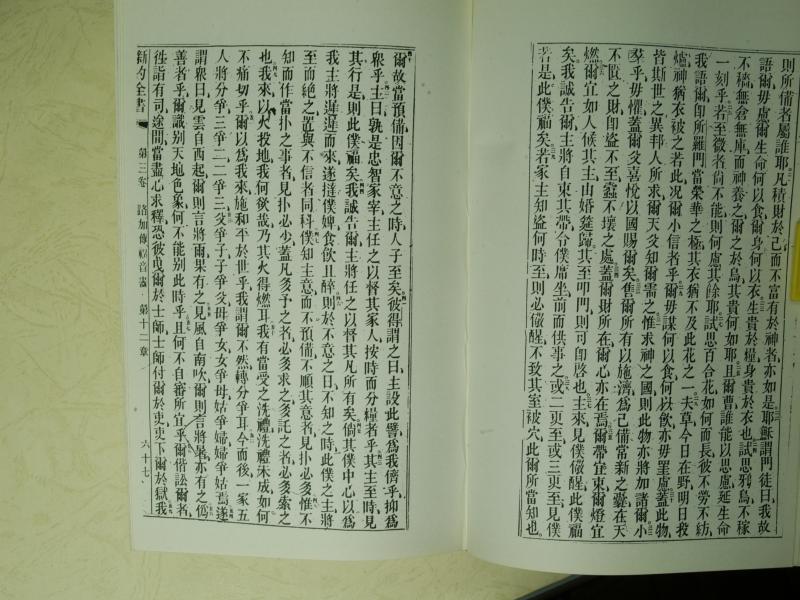 則所備者屬誰耶凡積財於己而不富有於神者亦如是耶穌謂門徒曰我故
語爾毋慮爾生命何以食爾身何以衣生貴於糧身貴於衣也試思鴉鳥不稼
不穡無倉無庫而神養之爾之於鳥其貴何如耶且爾曹誰能以思慮延生命
一刻乎若至微者尚不能則何慮其餘耶試思百合花如何而長彼不勞不紡
我語爾卽所羅門當榮華之極其衣猶不及此花之一夫草今日在野明日投
爐神猶衣被之若此况爾小信者乎爾毋謀何以食何以飲亦毋罣慮蓋此物
皆斯世之異邦人所求爾天父知爾需之惟求神之國則此物亦將加諸爾小
羣乎毋懼蓋爾父喜悅以國賜爾矣售爾所有以施濟爲己備當新之囊在天
不匱之財卽盜不至蠹不壞之處蓋爾財所在爾心亦在焉爾帶宜束爾燈宜
燃爾宜如人候其主由婚筵歸其至叩門則可卽啓也主來見僕儆醒此僕福
矣我誠告爾主將自束其帶令僕席坐前而供事之或二更至或三更至見僕
若是此僕福矣若家主知盜何時至則必儆醒不致其室被穴此爾所當知也
爾故當預備因爾不意之時人子至矣彼得謂之曰主設此譬爲我儕乎抑爲
衆乎主曰孰是忠智家宰主任之以督其家人按時而分糧者乎其主至時見
其行是則此僕福矣我誠告爾主將任之以督其凡所有矣倘其僕中心以爲
我主將遲遲而來遂撻僕婢食飲且醉則於不意之日不知之時此僕之主將
至而絕之置與不信者同科僕知主意而不預備不順其意者見扑必多惟不
知而作當扑之事者見扑必少蓋凡多予之者必多求之多託之者必多索之
也我來以火投地我何欲哉乃其火得燃耳我有當受之洗禮洗禮未成如何
不痛切乎爾以爲我來施和平於世乎我謂爾不然轉分爭耳今而後一家五
人將分爭三爭二二爭三父爭子子爭父母爭女女爭母姑爭婦婦爭姑焉遂
謂衆曰見雲自西起爾則言將雨果有之見風自南吹爾則言將暑亦有之僞
善者乎爾識別天地色象何不能別此時乎且何不自審所宜乎爾偕訟爾者
徃詣有司途間當盡心求釋恐彼曳爾於士師士師付爾於吏吏下爾於獄我
新約全書 第三卷 路加傳福音書 第十二章 六十七